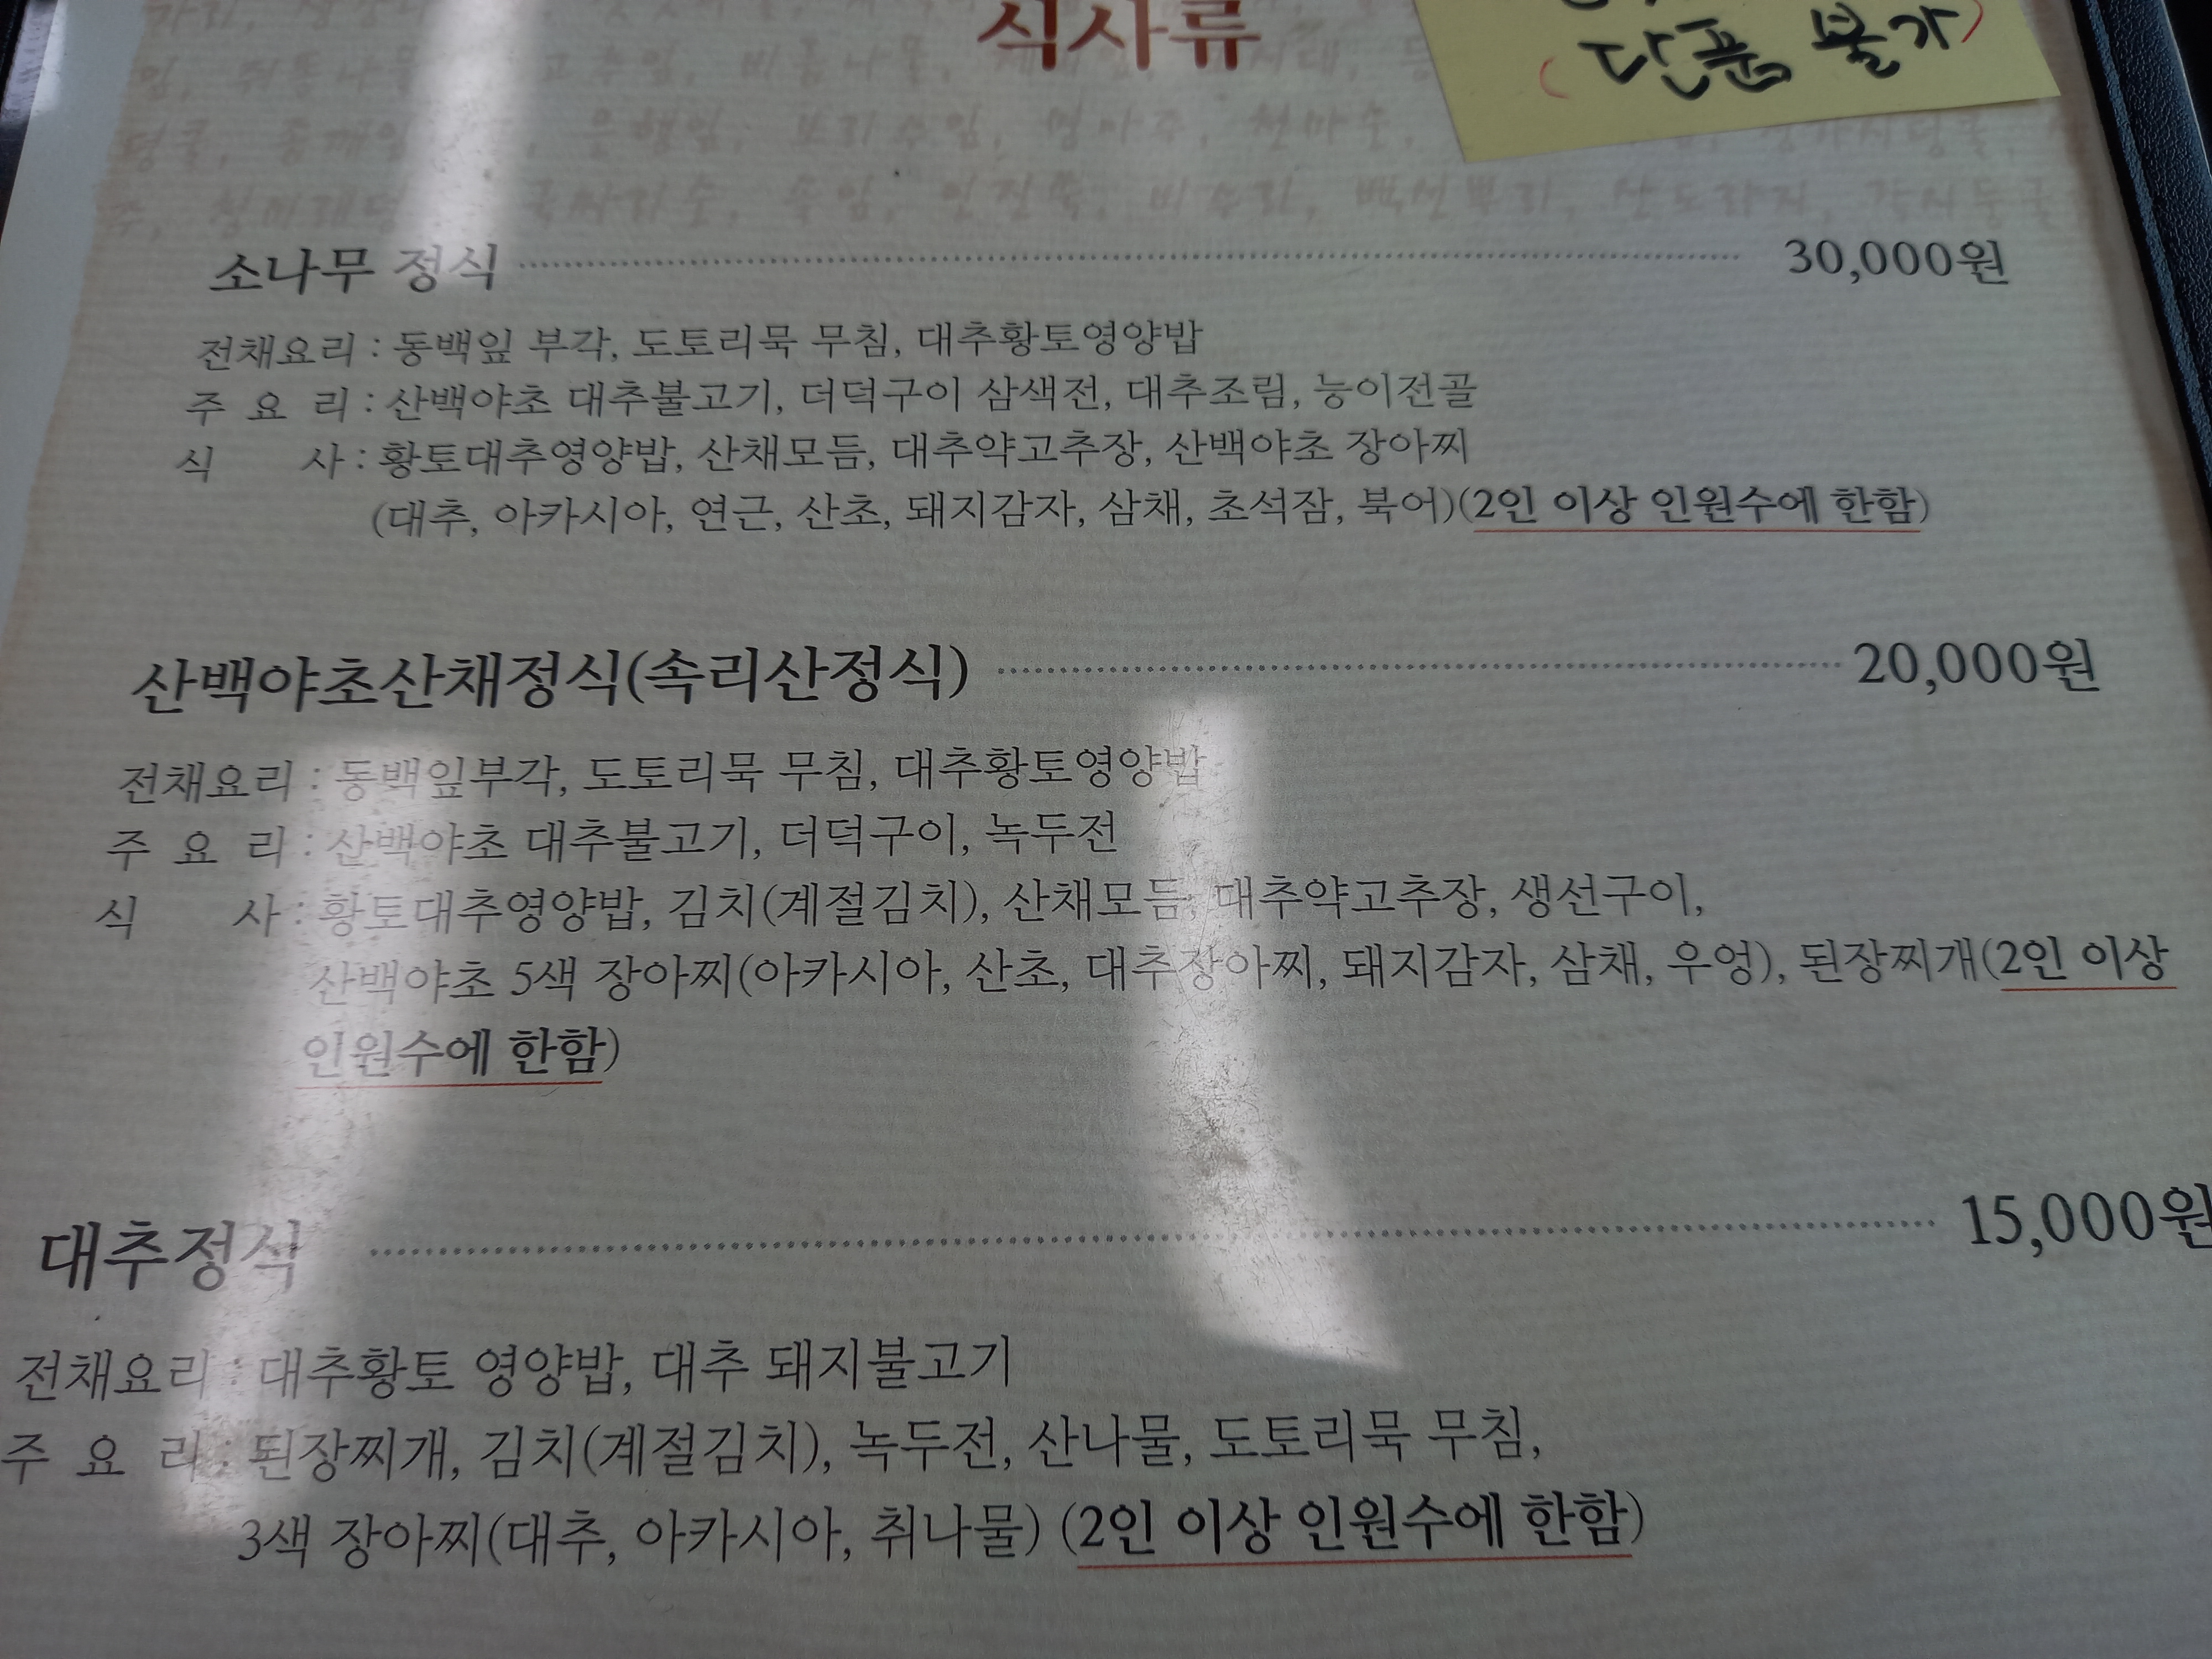 식사류
(단품 불가)
소나무 정식 30,000원
전채요리 : 동백잎 부각, 도토리묵 무침, 대추황토영양밥
주 요 리 : 산백야초 대추불고기, 더덕구이 삼색전, 대추조림, 능이전골
식 사 : 황토대추영양밥, 산채모듬, 대추약고추장, 산백야초 장아찌
(대추, 아카시아, 연근, 산초, 돼지감자, 삼채, 초석잠, 북어)(2인 이상 인원수에 한함)
산백야초산채정식(속리산정식) 20,000원
전채요리 : 동백잎부각, 도토리묵 무침, 대추황토영양밥
주 요 리 : 산백야초 대추불고기, 더덕구이, 녹두전
식 사 : 황토대추영양밥, 김치(계절김치), 산채모듬, 대추약고추장, 생선구이,
산백야초 5색 장아찌(아카시아, 산초, 대추장아찌, 돼지감자, 삼채, 우엉), 된장찌개(2인 이상
인원수에 한함)
대추정식 15,000원
전채요리 : 대추황토 영양밥, 대추 돼지불고기
주 요 리 : 된장찌개, 김치(계절김치), 녹두전, 산나물, 도토리묵 무침,
3색 장아찌(대추, 아카시아, 취나물) (2인 이상 인원수에 한함)